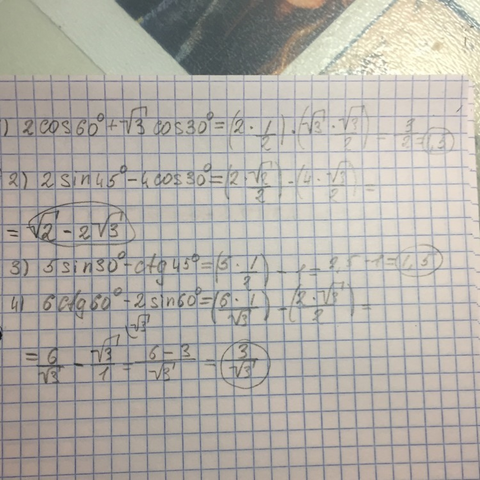 1) 2cos60°+√3 cos30°=(2·1/2)·(√3·√3/2)=3/2=1,5
2) 2sin45°-4cos30°=(2·√2/2)-(4·√3/2)=
=√2-2√3
3) 5sin30°-ctg45°=(5·1/2)-1=2,5-1=1,5
4) 6ctg60°-2sin60°=(6·1/√3)-(2·√3/2)=
=6/√3-√3/1(√3=6-3/√3=3/√3